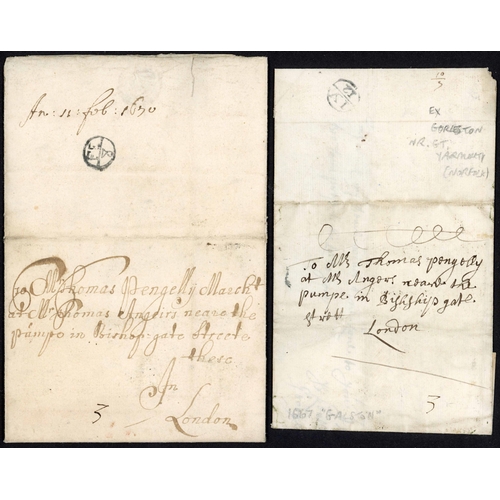 An: 11: feb: 1630
To Mr Thomas Pengelly March^t
at Mr Thomas Angeirs neare the
Pumpe in Bishop-gate Streete
these
In
London
3
10
3
EX
GORLESTON
NR. GT.
YARMOUTH
(NORFOLK)
To Mr Thomas Pengelly
at Mr Angers neare the
pumpe in Bishships gate
strett
London
3
1667 "GALSTON"